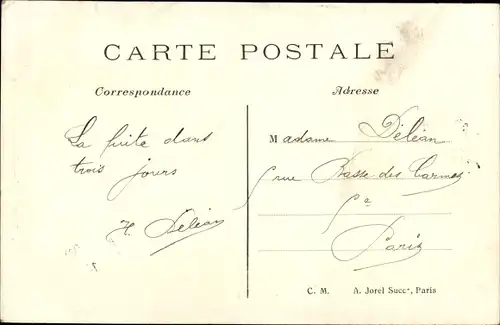 CARTE POSTALE
Correspondance
Adresse
La suite dans
trois jours
H. Déléan
Madame Déléan
5 rue Basse des Carmes
5e
Paris
C. M. A. Jorel Succr, Paris